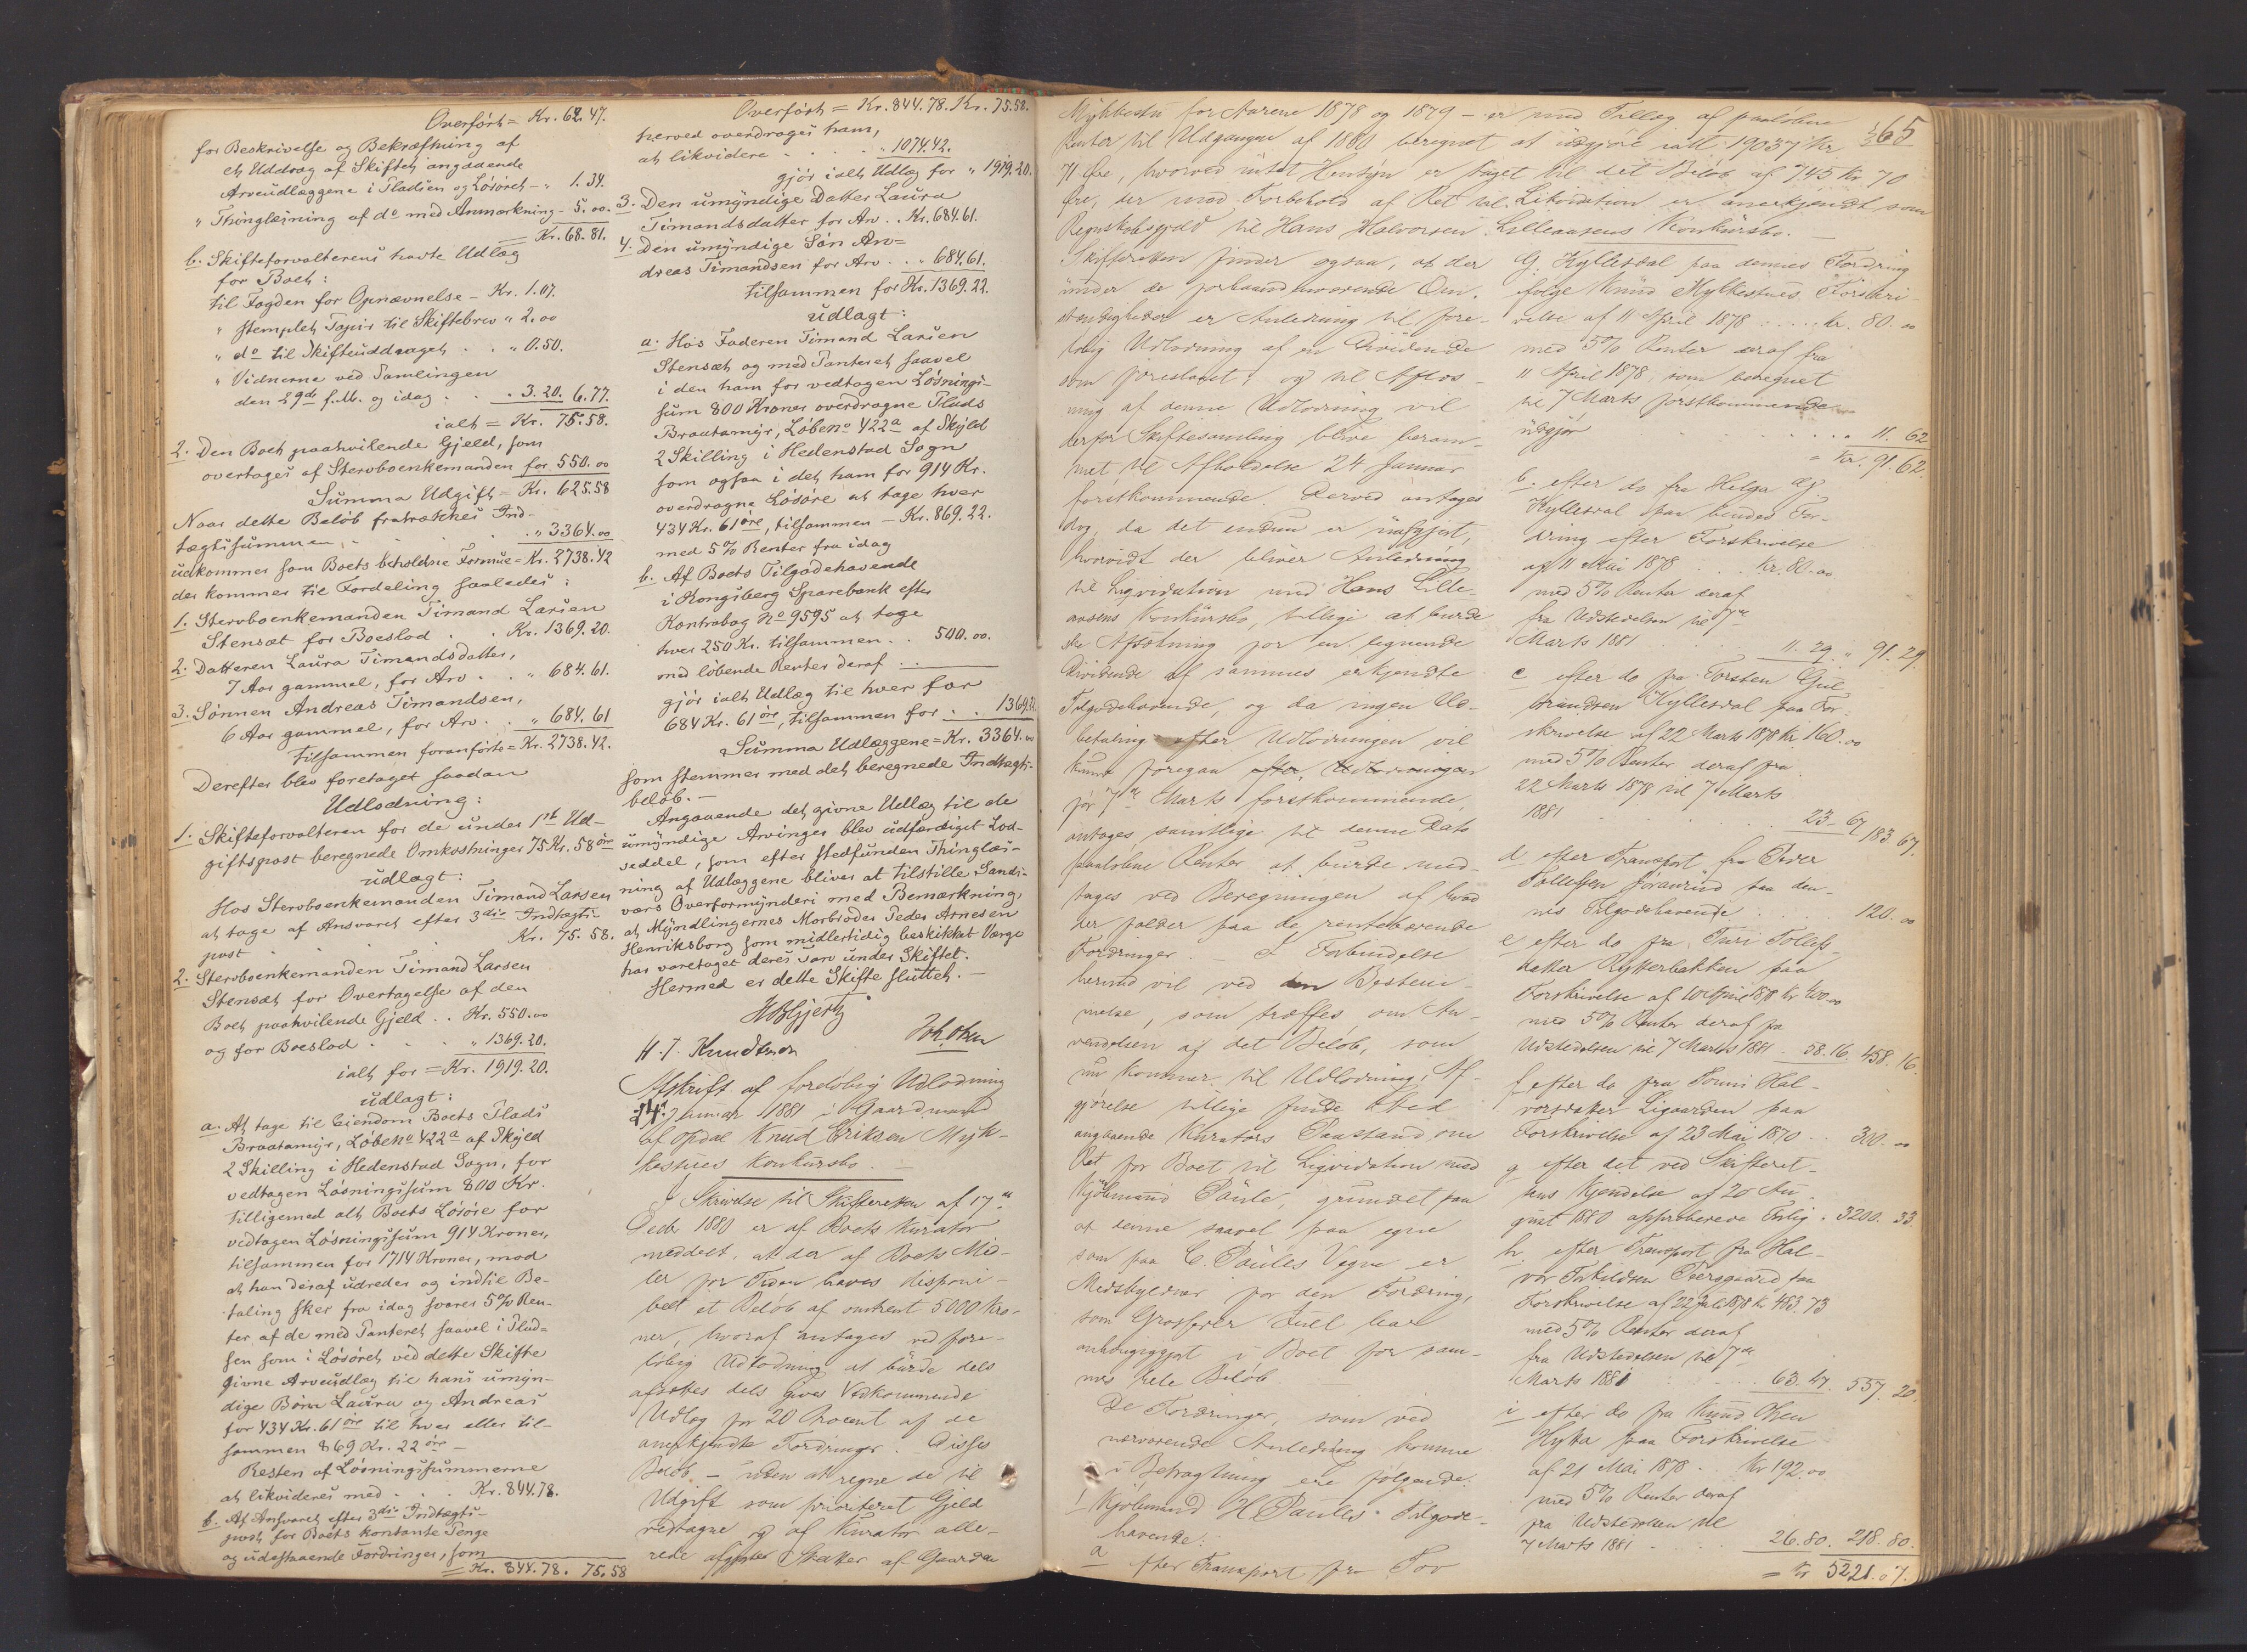 Overført = Kr. 62.47.
for Beskrivelse og Bekræftning af
et Uddrag af Skiftet angaaende
Arveudlæggene i Pladsen og Løsøret - " 1.34.
" Thinglæsning af do med Anmærkning - 5.00.
= Kr. 68.81.
b. Skifteforvalterens havte Udlæg
for Boet:
til Fogden for Opnævnelse - Kr. 1.07.
" stemplet Papir til Skiftebrev " 2.00
" do til Skifteuddraget . . " 0.50.
" Vidnerne ved Samlingen
den 29de f.M. og idag . . . 3.20. 6.77.
ialt = Kr. 75.58.
2. Den Boet paahvilende Gjeld, som
overtages af Stervboenkemanden for 550.00
Summa Udgift = Kr. 625.58
Naar dette Beløb fratrækkes Ind-
tægtssummen . . . . " 3364.00
udkommer som Boets beholdne Formue = Kr. 2738.42
der kommer til Fordeling saaledes:
1. Stervboenkemanden Timand Larsen
Stensæt for Boeslod . . Kr. 1369.20.
2. Datteren Laura Timandsdatter,
7 Aar gammel, for Arv . . " 684.61.
3. Sønnen Andreas Timandsen,
6 Aar gammel, for Arv . . " 684.61
tilsammen foranførte = Kr. 2738.42.
Derefter blev foretaget saadan
Udlodning:
1. Skifteforvalteren for de under 1ste Ud-
giftspost beregnede Omkostninger 75 Kr. 58 øre
udlagt:
Hos Stervboenkemanden Timand Larsen
at tage af Ansvaret efter 3die Indtægts-
post . . . . Kr. 75.58.
2. Stervboenkemanden Timand Larsen
Stensæt for Overtagelse af den
Boet paahvilende Gjeld . . Kr. 550.00
og for Boeslod . . . " 1369.20.
ialt for = Kr. 1919.20.
udlagt:
a. At tage til Eiendom Boets Plads
Braatamyr, Løbeno 422a af Skyld
2 Skilling i Hedenstad Sogn, for
vedtagen Løsningssum 800 Kr.
tilligemed alt Boets Løsøre for
vedtagen Løsningssum 914 Kroner,
tilsammen for 1714 Kroner, mod
at han deraf udreder og indtil Be-
taling sker fra idag svarer 5% Ren-
ter af de med Panteret saavel i Plad-
sen som i Løsøret ved dette Skifte
givne Arveudlæg til hans umyn-
dige Børn Laura og Andreas
for 434 Kr. 61 øre til hver eller til-
sammen 869 Kr. 22 øre -
Resten af Løsningssummerne
at likvideres med . . . Kr. 844.78.
b. Af Ansvaret efter 3die Indtægts-
post for Boets kontante Penge
og udestaaende Fordringer, som
= Kr. 844.78. 75.58
Overført = Kr. 844.78. Kr. 75.58.
herved overdrages ham,
at likvidere . . . " 1074.42.
gjør ialt Udlæg for " 1919.20.
3. Den umyndige Datter Laura
Timandsdatter for Arv . . Kr. 684.61.
4. Den umyndige Søn An-
dreas Timandsen for Arv . . " 684.61.
tilsammen for Kr. 1369.22.
udlagt:
a. Hos Faderen Timand Larsen
Stensæt og med Panteret saavel
i den ham for vedtagen Løsnings-
sum 800 Kroner overdragne Plads
Braatamyr, Løbeno 422a af Skyld
2 Skilling i Hedenstad Sogn
som ogsaa i det ham for 914 Kr.
overdragne Løsøre at tage hver
434 Kr. 61 øre, tilsammen - Kr. 869.22.
med 5% Renter fra idag
b. Af Boets Tilgodehavende
i Kongsberg Sparebank efter
Kontrabog No 9595 at tage
hver 250 Kr. tilsammen . . 500.00.
med løbende Renter deraf . .
gjør ialt Udlæg til hver for
684 Kr. 61 øre, tilsammen for . . 1369.22
Summa Udlæggene = Kr. 3364.00
som stemmer med det beregnede Indtægts-
beløb. -
Angaaende det givne Udlæg til de
umyndige Arvinger blev udfærdiget Lod-
seddel, som efter stedfunden Thinglæs-
ning af Udlæggene bliver at tilstille Sands-
værs Overformynderi med Bemærkning,
at Myndlingernes Morbroder Peder Arnesen
Henriksborg som midlertidig beskikket Værge
har varetaget deres Tarv under Skiftet.
Hermed er dette Skifte sluttet. -
H. J. Knudtson
Joh. Olsen
Afskrift af foreløbig Udlodning
24. Januar 1881 i Gaardmand
af Opdal Knud Eriksen Myk-
stues Konkursbo. -
I Skrivelse til Skifteretten af 17de
Decbr 1880 er af Boets Kurator
meddelt, at der af Boets Mid-
ler for Tiden haves disponi-
belt et Beløb af omtrent 5000 Kro-
ner, hvoraf antages ved fore-
løbig Udlodning at burde dels
afsættes dels gives Vedkommende
Udlæg for 20 Procent af de
anerkjendte Fordringer. - Disses
Beløb - uden at regne de til
Udgift som prioriteret Gjeld
vedtagne og af Kurator alle-
rede afgjorte Skatter af Gaarden
365
Mykkestu for Aarene 1878 og 1879 - er med Tillæg af paaløbne
Renter til Udgangen af 1880 beregnet at udgjøre ialt 19037 Kr
71 Øre, hvorved intet Hensyn er taget til det Beløb af 745 Kr 70
Øre, der med Forbehold af Ret til Likvidation er anerkjendt som
Regnskabsgjeld til Hans Halvorsen Lilleaasens Konkursbo. -
Skifteretten finder ogsaa, at der
under de forhaandenværende Om-
stændigheder er Anledning til fore-
løbig Udlodning af en Dividende
som foreslaaet; og til Afslut-
ning af denne Udlodning vil
derfor Skiftesamling blive beram-
met til Afholdelse 24 Januar
førstkommende. Derved antages
dog, da det endnu er uafgjort,
hvorvidt der bliver Anledning
til Ligvidation med Hans Lille-
aasens Konkursbo, tillige at burde
ske Afsætning for en lignende
Dividende af sammes erkjendte
Tilgodehavende, og da ingen Ud-
betaling efter Udlodningen vil
kunne foregaa efter Udlodningen
før 7de Marts førstkommende,
antages samtlige til denne Dato
paaløbne Renter at burde med-
tages ved Beregningen af hvad
der falder paa de rentebærende
Fordringer. - I Forbindelse
hermed vil ved den Bestem-
melse, som træffes om An-
vendelsen af det Beløb, som
nu kommer til Udlodning, Af-
gjørelse tillige finde Sted
angaaende Kurators Paastand om
Ret for Boet til Ligvidation med
Kjøbmand Paule, grundet paa
at denne saavel paa egne
som paa C. Paules Vegne er
Medskyldner for den Fordring,
som Grosserer Juel har
anhængiggjort i Boet for sam-
mes hele Beløb.
De Fordringer, som ved
nærværende Anledning komme
i Betragtning ere følgende:
1 Kjøbmand H Paules Tilgode-
havende:
a efter Transport fra Tov
G. Kyllesdal paa dennes Fordring
følge Knud Mykkestues Forskri-
velse af 11 April 1878 . . . . . Kr. 80.00
med 5% Renter deraf fra
11 April 1878, som beregnet
til 7 Marts førstkommende
udgjør . . . . . . 11.62
= Kr. 91.62.
b. efter do fra Helga G.
Kyllesdal paa hendes For-
dring efter Forskrivelse
af 11 Mai 1878 . . . Kr. 80.00
med 5% Renter deraf
fra Udstedelsen til 7de
Marts 1881 . . . . 11.29. " 91.29.
c efter do fra Torsten Gul-
brandsen Kyllesdal paa For-
skrivelse af 22 Marts 1878 Kr 160.00
med 5% Renter deraf fra
22 Marts 1878 til 7 Marts
1881 . . . . . 23-67 183.67.
d efter Transport fra Peder
Tollefsen Joranrud paa den-
nes Tilgodehavende . . . 120.00
e efter do fra Turi Tollefs-
datter Rytterbakken paa
Forskrivelse af 10 April 1878 Kr 400.00
med 5% Renter deraf fra
Udstedelsen til 7 Marts 1881 . 58.16. 458.16.
f efter do fra Tonni Hal-
vorsdatter Ligaarden paa
Forskrivelse af 23 Mai 1870 . . . 300.00
g efter det ved Skifteret-
tens Kjendelse af 20 Au-
gust 1880 approberede Forlig . 3200.33.
h. efter Transport fra Hal-
vor Torkildsen Tversgaard paa
Forskrivelse af 22 Juli 1878 Kr 493.73
med 5% Renter deraf
fra Udstedelsen til 7de
Marts 1881 . . . . 63.47. 557.20.
i efter do fra Knud Olsen
Hytta paa Forskrivelse
af 21 Mai 1878 . Kr 192.00
med 5% Renter deraf
fra Udstedelsen til
7 Marts 1881 . . . . 26.80. 218.80.
= Kr 5221.07.